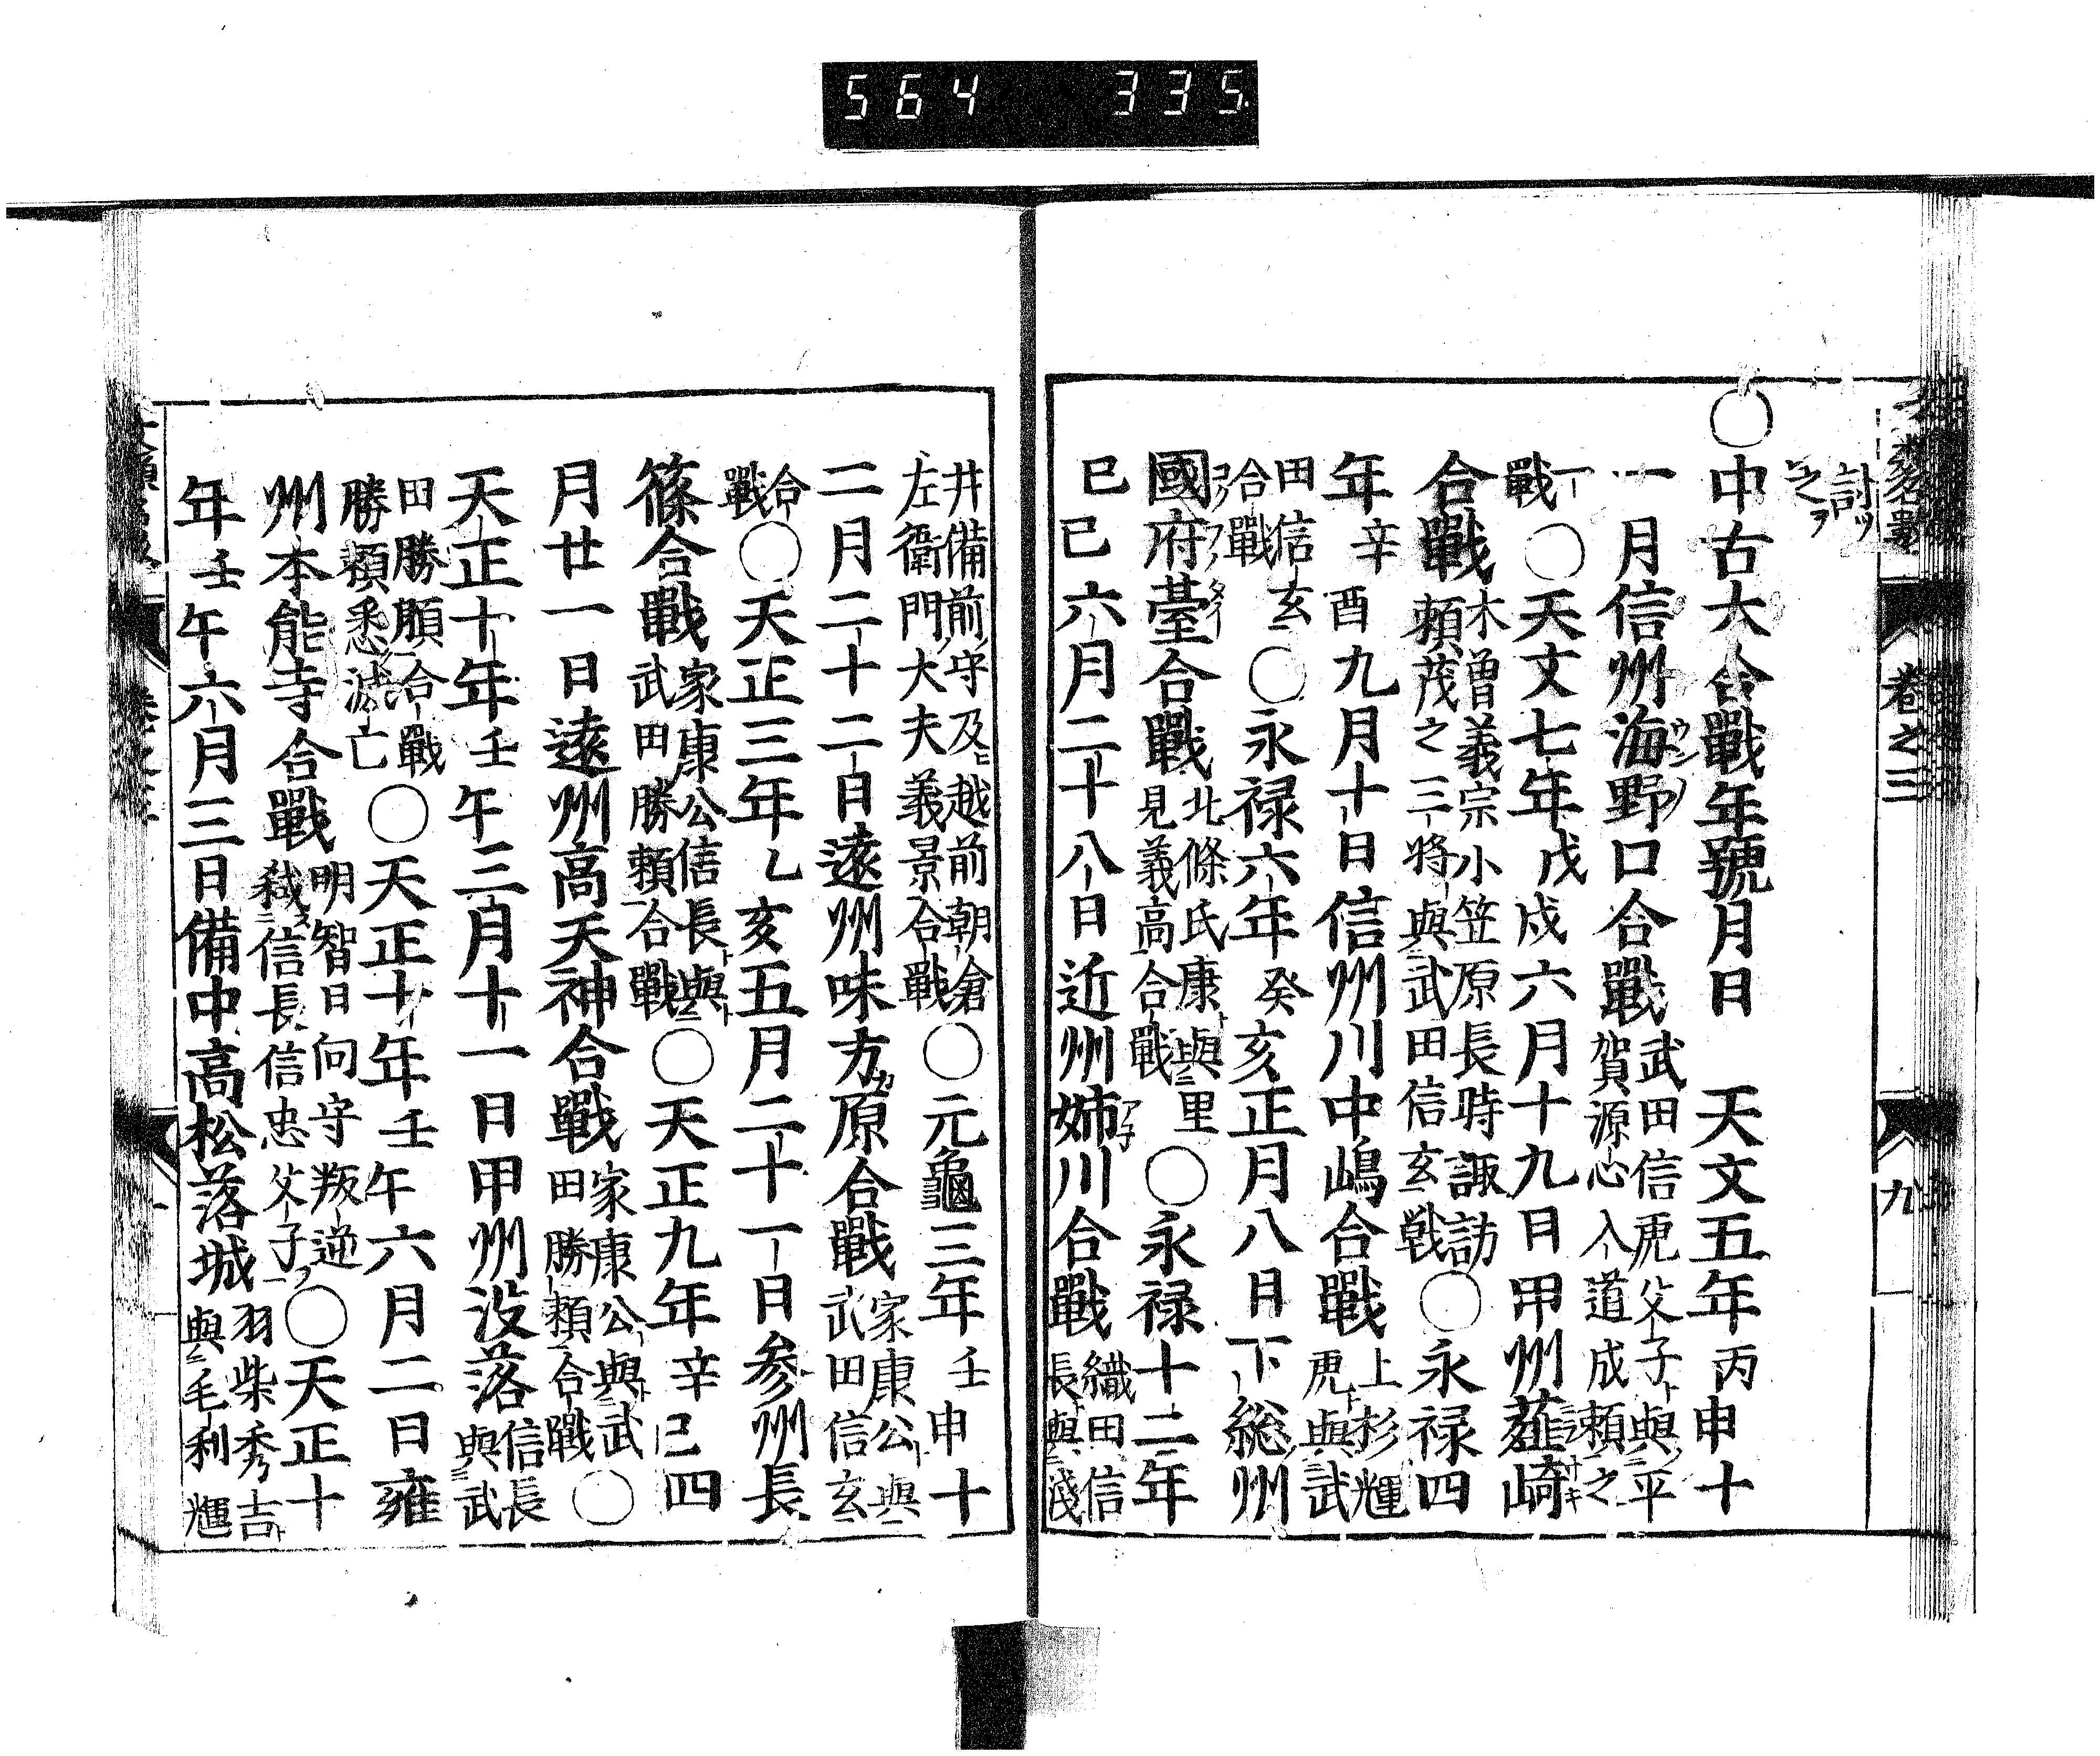 564 335
卷之三
九
討ツ
レ之ヲ
○中古大合戰年號月日 天文五年丙申十
一月信州海野口合戰武田信虎父子與平
賀源心入道成頼之
戰○天文七年戊戌六月十九日甲州薤崎
合戰木曽義宗小笠原長時諏訪
頼茂之三将與武田信玄戦○永禄四
年辛酉九月十日信州川中嶋合戰上杉輝
虎與武
田信玄
合戰○永禄六年癸亥正月八日下総州
國府臺合戰北條氏康與里
見義高合戰○永禄十二年
己巳六月二十八日近州姉川合戰織田信
長與淺
井備前守及越前朝倉
左衛門大夫義景合戰○元龜三年壬申十
二月二十二日遠州味方原合戰家康公與
武田信玄
合
戰○天正三年乙亥五月二十一日参州長
篠合戰家康公信長與
武田勝頼合戰○天正九年辛巳四
月廿一日遠州高天神合戰家康公與武
田勝頼合戰○
天正十年壬午三月十一日甲州没落信長
與武
田勝頼合戰
勝頼悉滅亡○天正十年壬午六月二日雍
州本能寺合戰明智日向守叛逆
弑信長信忠父子○天正十
年壬午六月三日備中高松落城羽柴秀吉
與毛利輝